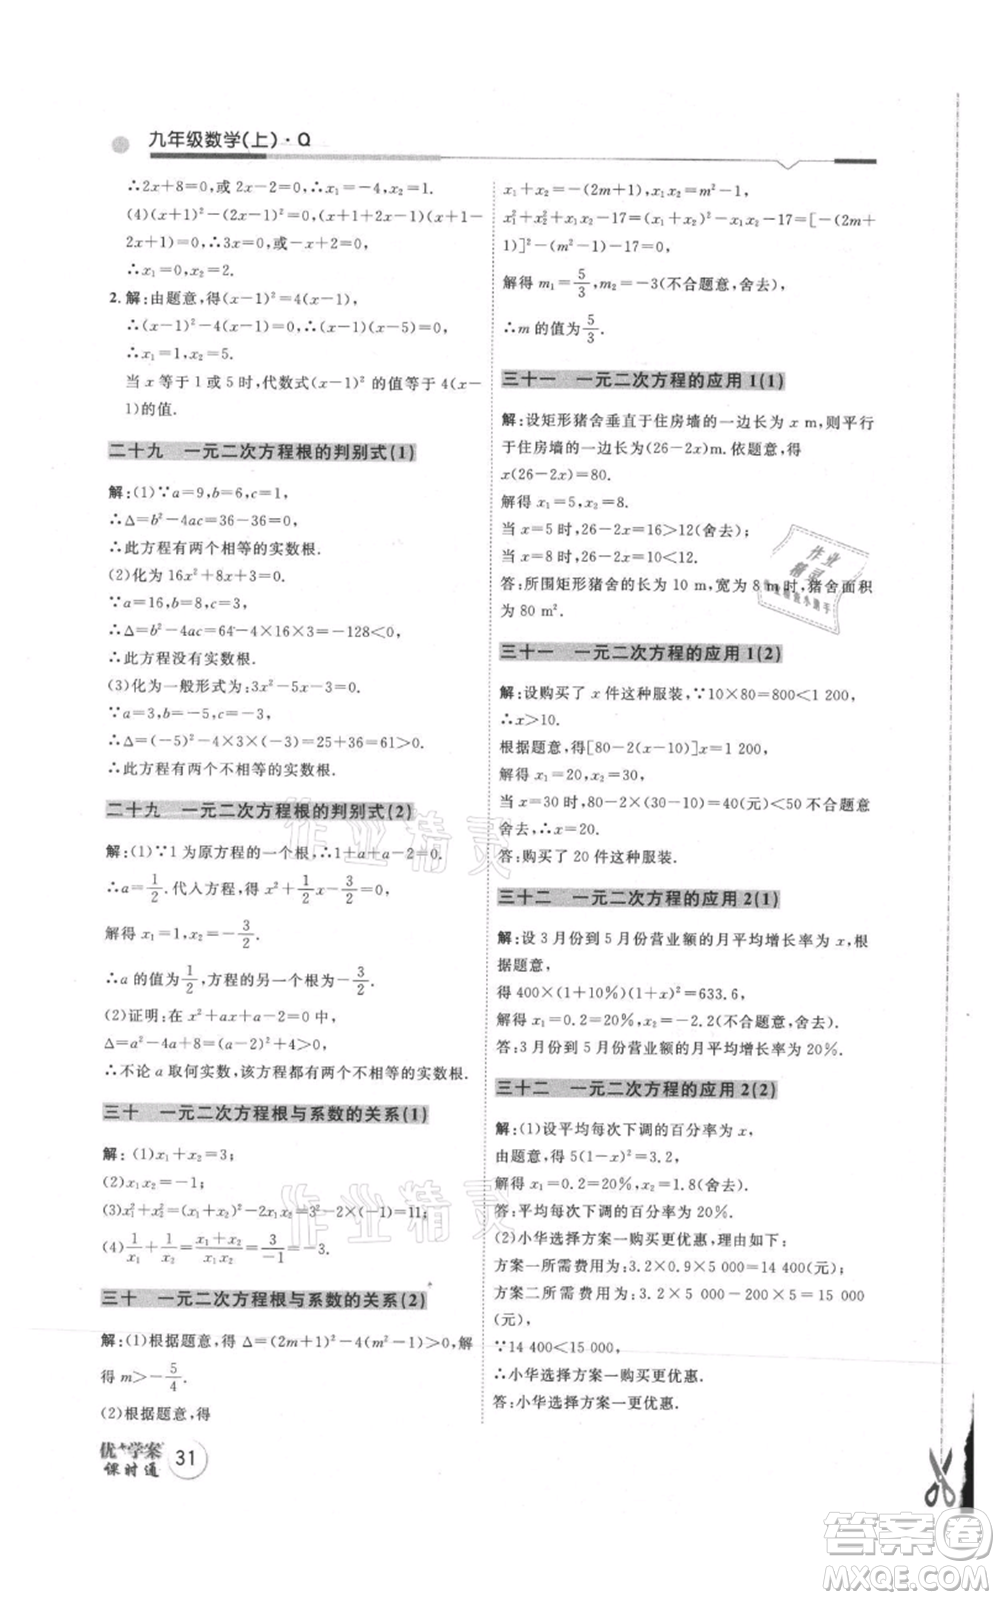 九年级数学(上)·Q
∴2x+8=0,或2x-2=0,∴x₁=-4,x₂=1.
(4)(x+1)²-(2x-1)²=0,(x+1+2x-1)(x+1-
2x+1)=0,∴3x=0,或2-x=0,
∴x₁=0,x₂=2.
2.解:由题意,得(x-1)²=4(x-1),
∴(x-1)²-4(x-1)=0,∴(x-1)(x-5)=0,
∴x₁=1,x₂=5.
当 x 等于 1 或 5 时,代数式(x-1)² 的值等于 4(x-
1)的值.
二十九 一元二次方程根的判别式(1)
解:(1)∵a=9,b=6,c=1,
∴Δ=b²-4ac=36-36=0,
∴此方程有两个相等的实数根.
(2)化为 16x²+8x+3=0,
∵a=16,b=8,c=3,
∴Δ=b²-4ac=64-4×16×3=-128<0,
∴此方程没有实数根.
(3)化为一般形式为:3x²-5x-3=0,
∵a=3,b=-5,c=-3,
∴Δ=(-5)²-4×3×(-3)=25+36=61>0,
∴此方程有两个不相等的实数根.
二十九 一元二次方程根的判别式(2)
解:(1)∵1 为原方程的一个根,∴1+a+a-2=0.
∴a=1/2.代入方程,得 x²+1/2x-3/2=0,
解得 x₁=1,x₂=-3/2.
∴a 的值为1/2,方程的另一个根为-3/2.
(2)证明:在 x²+ax+a-2=0 中,
Δ=a²-4a+8=(a-2)²+4>0,
∴不论 a 取何实数,该方程都有两个不相等的实数根.
三十 一元二次方程根与系数的关系(1)
解:(1)x₁+x₂=3;
(2)x₁x₂=-1;
(3)x₁²+x₂²=(x₁+x₂)²-2x₁x₂=3²-2×(-1)=11;
(4)1/x₁+1/x₂=(x₁+x₂)/(x₁x₂)=3/-1=-3.
三十 一元二次方程根与系数的关系(2)
解:(1)根据题意,得 Δ=(2m+1)²-4(m²-1)>0,解
得 m>-5/4.
(2)根据题意,得
优⁺学案
课时通
31
x₁+x₂=-(2m+1),x₁x₂=m²-1,
x₁²+x₂²+x₁x₂-17=(x₁+x₂)²-x₁x₂-17=[-(2m+
1)]²-(m²-1)-17=0,
解得 m₁=5/3,m₂=-3(不合题意,舍去),
∴m 的值为5/3.
三十一 一元二次方程的应用 1(1)
解:设矩形猪舍垂直于住房墙的一边长为 x m,则平行
于住房墙的一边长为(26-2x)m.依题意,得
x(26-2x)=80.
解得 x₁=5,x₂=8.
当 x=5 时,26-2x=16>12(舍去);
当 x=8 时,26-2x=10<12.
答:所围矩形猪舍的长为 10 m,宽为 8 m 时,猪舍面积
为 80 m².
三十一 一元二次方程的应用 1(2)
解:设购买了 x 件这种服装,∵10×80=800<1 200,
∴x>10.
根据题意,得[80-2(x-10)]x=1 200,
解得 x₁=20,x₂=30,
当 x=30 时,80-2×(30-10)=40(元)<50 不合题意
舍去,∴x=20.
答:购买了 20 件这种服装.
三十二 一元二次方程的应用 2(1)
解:设 3 月份到 5 月份营业额的月平均增长率为 x,根
据题意,
得 400×(1+10%)(1+x)²=633.6,
解得 x₁=0.2=20%,x₂=-2.2(不合题意,舍去).
答:3 月份到 5 月份营业额的月平均增长率为 20%.
三十二 一元二次方程的应用 2(2)
解:(1)设平均每次下调的百分率为 x,
由题意,得 5(1-x)²=3.2,
解得 x₁=0.2=20%,x₂=1.8(舍去).
答:平均每次下调的百分率为 20%.
(2)小华选择方案一购买更优惠,
方案一所需费用为:3.2×0.9×5 000=14 400(元),
方案二所需费用为:3.2×5 000-200×5=15 000
(元),
∵14 400<15 000,
∴小华选择方案一购买更优惠.
答:小华选择方案一购买更优惠.
作业精灵
作业精灵
作业
精灵
答案卷
MXQE.COM